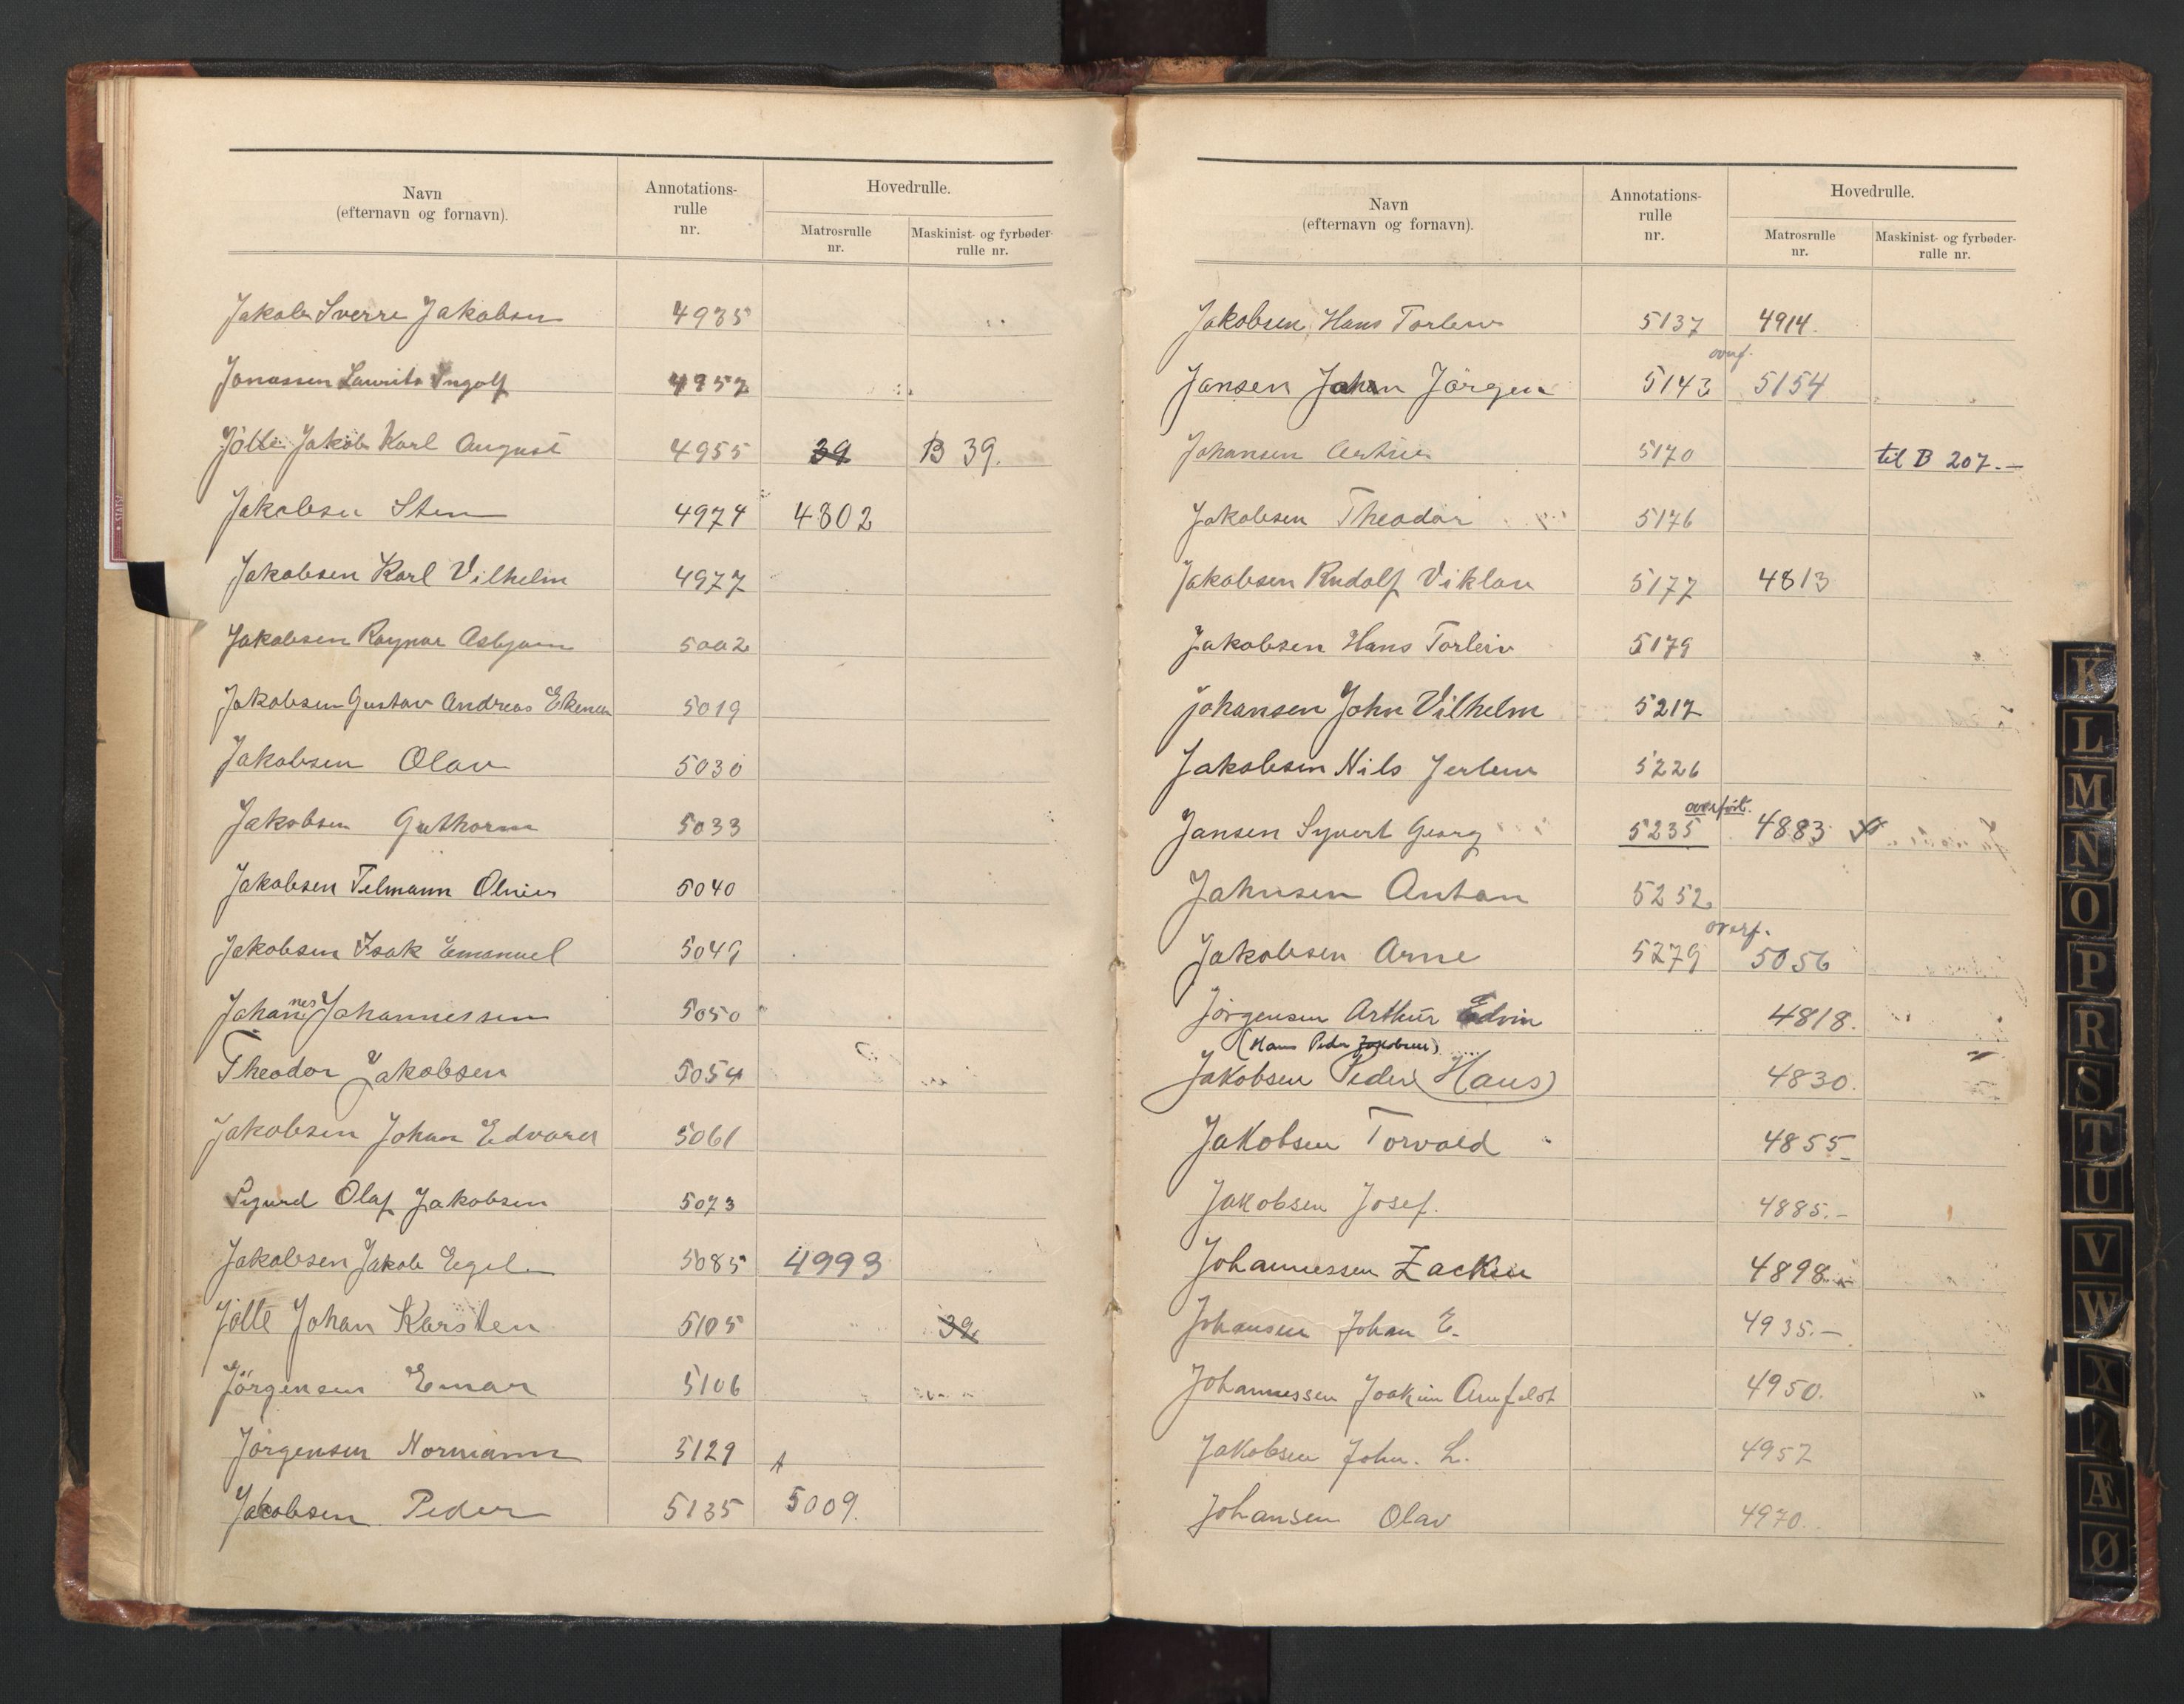 Navn
(efternavn og fornavn).
Annotations-
rulle
nr.
Hovedrulle.
Matrosrulle
nr.
Maskinist- og fyrbøder-
rulle nr.
Jakob Sverre Jakobsen 4935
Jonassen Laurits Ingolf 4952
Jølle Jakob Karl August 4955 39 B 39.
Jakobsen Sten 4974 4802
Jakobsen Karl Vilhelm 4977
Jakobsen Ragnar Asbjørn 5002
Jakobsen Gustav Andreas 5019
Jakobsen Olav 5030
Jakobsen Guthorm 5033
Jakobsen Telmann 5040
Jakobsen Isak Emanuel 5049
Johannes Johannessen 5050
Theodor Jakobsen 5054
Jakobsen Johan Edvard 5061
Sigurd Olaf Jakobsen 5073
Jakobsen Jakob Egil 5085 4993
Jølle Johan Karsten 5105 39
Jörgensen Einar 5106
Jørgensen Normann 5129
Jakobsen Peder 5135 5009.
Navn
(efternavn og fornavn).
Annotations-
rulle
nr.
Hovedrulle.
Matrosrulle
nr.
Maskinist- og fyrbøder-
rulle nr.
Jakobsen, Hans Torleiv 5137 4914.
overf.
Jansen Johan Jörgen 5143 5154
Johansen 5170 til B 207.-
Jakobsen Theodor 5176
Jakobsen Rudolf 5177 4813
Jakobsen Hans Torleiv 5179
Johansen John Vilhelm 5217
Jakobsen Nils 5226
overført.
Jansen Syvert Georg 5235 4883
Johnsen Anton 5252
overf.
Jakobsen Arne 5279 5056
Jörgensen Arthur Edvin 4818.
(Hans Peder Jakobsen)
Jakobsen Peder (Hans) 4830.
Jakobsen Torvald 4855-
Jakobsen Josef. 4885.-
Johannessen 4898.
Johansen Johan E. 4935.-
Johannessen Joakim 4950.
Jakobsen John. L. 4957
Johansen Olav 4970.
K
L
M
N
O
P
R
S
T
U
V
W
X
Æ
Ø